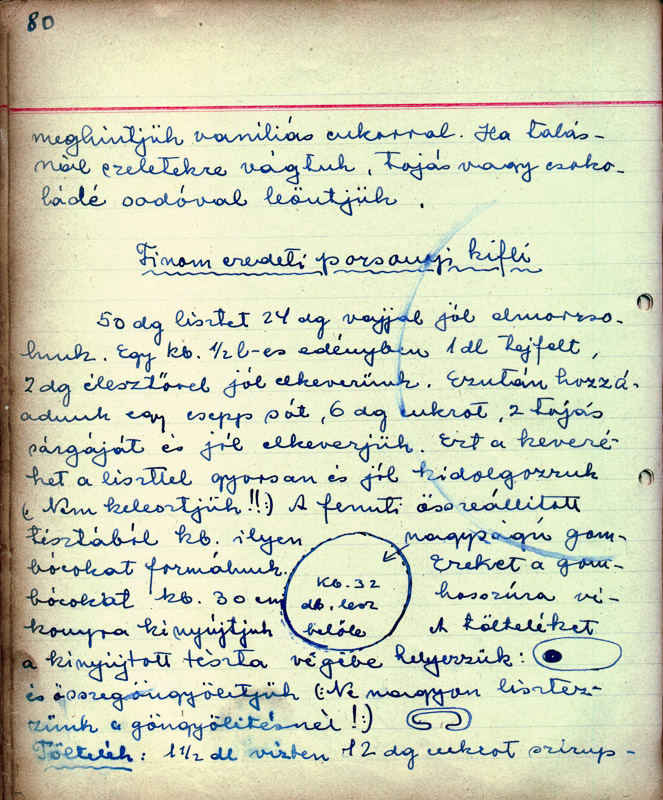 80
meghintjük vaniliás cukorral. Ha talás-
nál szeletekre vágtuk, tojás vagy csoko-
ládé sodóval leöntjük.
Finom eredeti pozsonyi kifli
50 dg lisztet 24 dg vajjal jól elmorzso-
lunk. Egy kb. 1/2 l-es edényben 1 dl tejfelt,
2 dg élesztővel jól elkeverünk. Ezután hozzá-
adunk egy csepp sót, 6 dg cukrot, 2 tojás
sárgáját és jól elkeverjük. Ezt a keveré-
ket a liszttel gyorsan és jól kidolgozzuk
(: Nem kelesztjük!!:) A fennti összeállitott
tésztából kb. ilyen nagyságú gom-
bócokat formálunk. Ezeket a gom-
bócokat kb. 30 cm hosszúra vé-
konyra kinyújtjuk A tölteléket
kb. 32
db. lesz
belőle
a kinyújtott tészta végébe helyezzük:
és összegöngyöljtjük (: Ne nagyon lisztez-
zünk a göngyölítésnél!:)
Töltelék: 1 1/2 dl vizben 12 dg cukrot szirup-